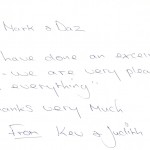 Mark & Daz
have done an excell
- we are very pleas
everything"
anks very Much
From Kev & Judith